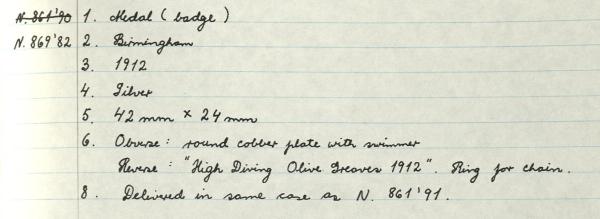 N. 861'90 1. Medal (badge)
N. 869'82 2. Birmingham
3. 1912
4. Silver
5. 42 mm x 24 mm
6. Obverse: round cobber plate with swimmer
Reverse: "High Diving Olive Greaves 1912". Ring for chain.
8. Delivered in same case as N. 861'91.